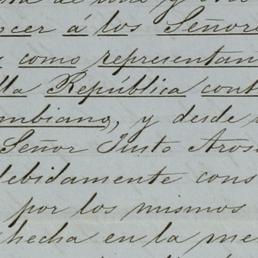 cer á los Señor
y como representan
lla República cont
mbiano, y desde
Señor Justo Aros
debidamente cons
por los mismos
hecha en la me